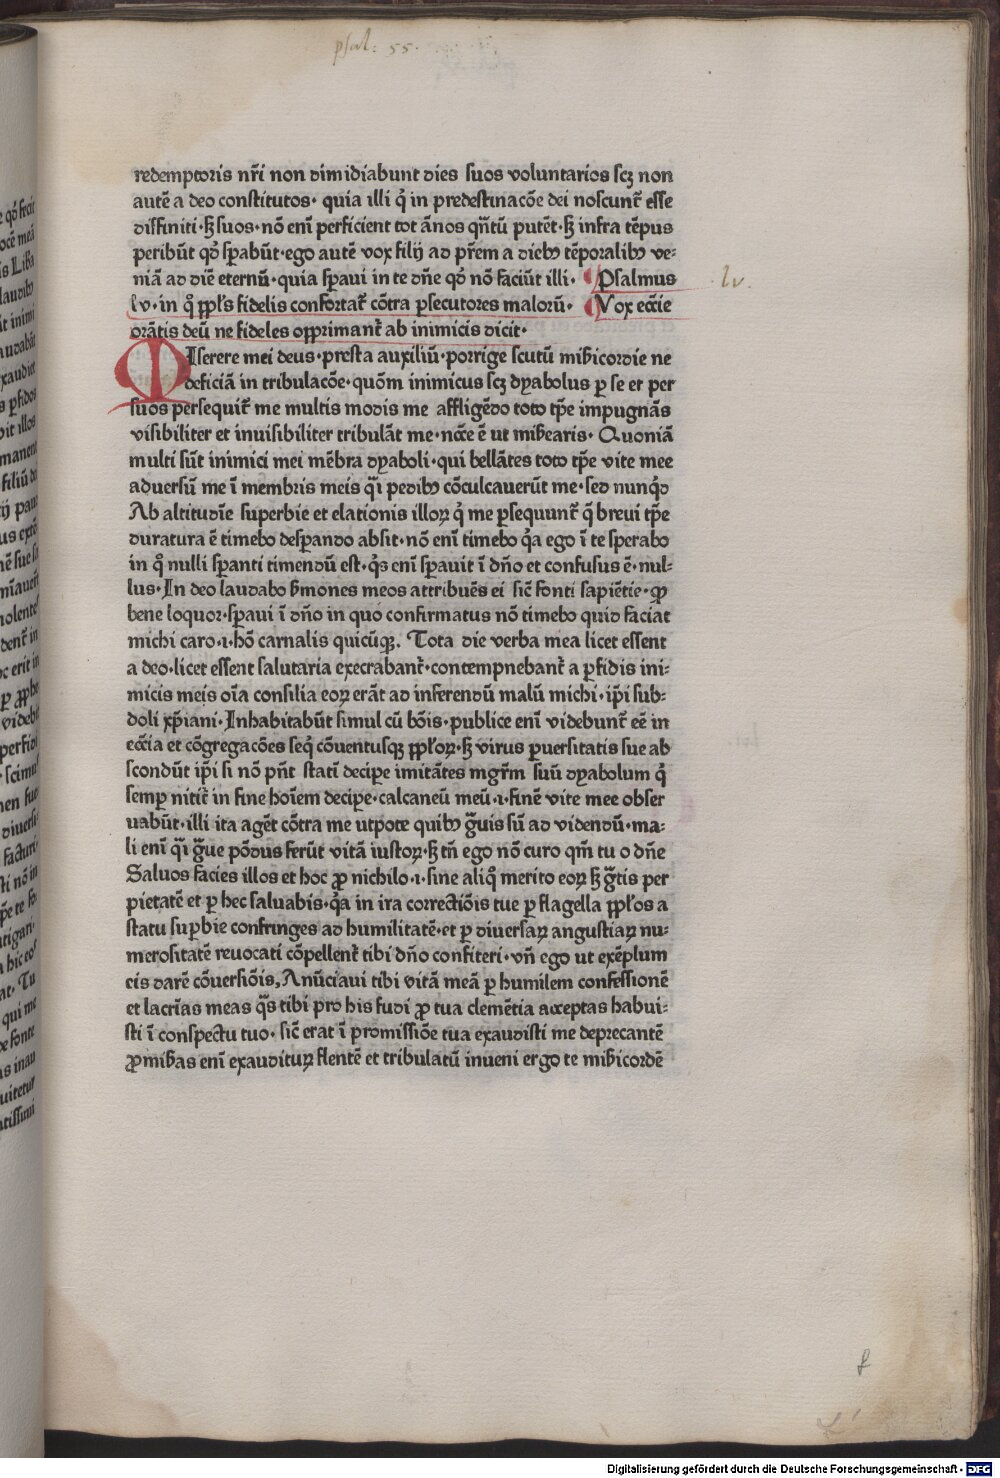 psal: 55.
redemptoris nr̃i non dimidiabunt dies suos voluntarios scꝫ non
autē a deo constitutos· quia illi q̇ in predestinacōe dei noscunt̃ esse
diffiniti·ꝫ suos·nō enī perficient tot ānos qñtū putēt·ꝫ infra tēpus
peribūt qđ sꝑabūt·ego autē vox filij ad pr̄em a diebꝫ tēporalibꝫ ve⸗
niā ad diē eternū·quia sꝑaui in te dñe qđ nō faciūt illi· Psalmus
lv· in q̊ ꝓpl̄s fidelis confortat̃ cōtra ꝑsecutores malorū· Vox eccīe
orātis deū ne fideles opprimant̃ ab inimicis dicit·
lv.
MIserere mei deus·presta auxiliū·porrige scutū mīḃicordie ne
deficiā in tribulacōe·quōm inimicus scꝫ dyabolus ꝑ se et per
suos persequit̃ me multis modis me affligēdo toto tp̄e impugnās
visibiliter et inuisibiliter tribulāt me·nccē ē ut mīḃearis· Quoniā
multi sūt inimici mei mēbra dyaboli·qui bellātes toto tp̄e vite mee
aduersū me ī membris meis q̄ī pedibꝫ cōculcauerūt me·sed nunq̊d
Ab altitudīe superbie et elationis illoꝝ q̇ me ꝑsequunt̃ q̄ breui tp̄e
duratura ē timebo desꝑando absit·nō enī timebo q̇a ego ī te sperabo
in q̊ nulli sꝑanti timendū est·q̇s enī sꝑauit ī dño et confusus ē·nul⸗
lus·In deo laudabo ẜmones meos attribuēs ei sic̄ fonti sapiētie·ꝙ
bene loquor·sꝑaui ī dño in quo confirmatus nō timebo quid faciat
michi caro·ı·hō carnalis quicūqꝫ. Tota die verba mea licet essent
a deo·licet essent salutaria execrabant̃·contempnebant̃ a ꝑfidis ini⸗
micis meis oīa consilia eoꝝ erāt ad inferendū malū michi·ip̄i sub⸗
doli xp̄iani·Inhabitabūt simul cū bōis·publice enī videbunt̃ eē in
eccīa et cōgregacōes seq̇ cōuentusqꝫ ꝓpl̄oꝝ·ꝫ virus ꝑuersitatis sue ab
scondūt ip̄i si nō pñt statī decipe imitātes mgr̄m suū dyabolum q̇
semꝑ nitit̃ in fine hoīem decipe·calcaneū meū·ı·finē vite mee obser
uabūt·illi ita agēt cōtra me utpote quibꝫ g̊uis sū ad videndū·ma⸗
li enī q̄ī g̊ue pōdus ferūt vitā iustoꝝ·ꝫ tñ ego nō curo qm̄ tu o dñe
Saluos facies illos et hoc ꝓ nichilo·ı·sine aliq̊ merito eoꝝ ꝫ g̊tis per
pietatē et ꝑ hec saluabis·q̇a in ira correctiōis tue ꝑ flagella ꝓpl̄os a
statu suꝑbie confringes ad humilitatē·et ꝑ diuersaꝝ angustiaꝝ nu⸗
merositatē reuocati cōpellent̃ tibi dño confiteri·vñ ego ut exēplum
eis darē cōuersiōis, Anūciaui tibi vitā meā ꝑ humilem confessionē
et lacrīas meas q̄s tibi pro his fudi ꝓ tua clemētia acceptas habui⸗
sti ī conspectu tuo· sic̄ erat ī promissiōe tua exaudisti me deprecantē
ꝓmiḃas enī exauditur flentē et tribulatū inueni ergo te mīḃicordē
Digitalisierung gefördert durch die Deutsche Forschungsgemeinschaft · DFG